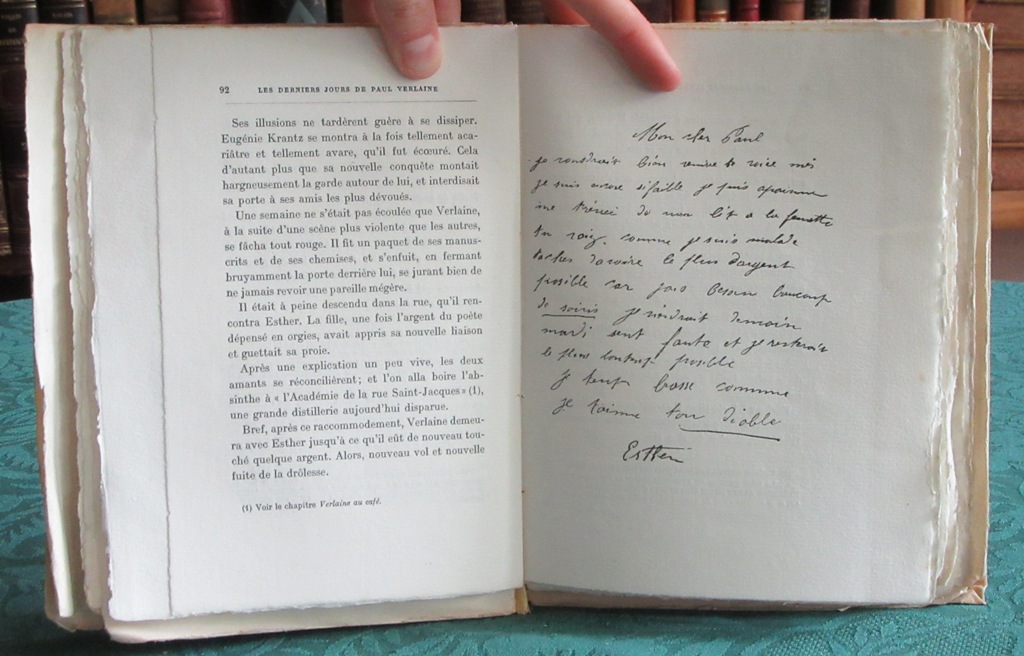 92 LES DERNIERS JOURS DE PAUL VERLAINE
Ses illusions ne tardèrent guère à se dissiper.
Eugénie Krantz se montra à la fois tellement aca-
riâtre et tellement avare, qu'il fut écœuré. Cela
d'autant plus que sa nouvelle conquête montait
hargneusement la garde autour de lui, et interdisait
sa porte à ses amis les plus dévoués.
Une semaine ne s'était pas écoulée que Verlaine,
à la suite d'une scène plus violente que les autres,
se fâcha tout rouge. Il fit un paquet de ses manus-
crits et de ses chemises, et s'enfuit, en fermant
bruyamment la porte derrière lui, se jurant bien de
ne jamais revoir une pareille mégère.
Il était à peine descendu dans la rue, qu'il ren-
contra Esther. La fille, une fois l'argent du poète
dépensé en orgies, avait appris sa nouvelle liaison
et guettait sa proie.
Après une explication un peu vive, les deux
amants se réconcilièrent ; et l'on alla boire l'ab-
sinthe à « l'Académie de la rue Saint-Jacques » (1),
une grande distillerie aujourd'hui disparue.
Bref, après ce raccommodement, Verlaine demeu-
ra avec Esther jusqu'à ce qu'il eût de nouveau tou-
ché quelque argent. Alors, nouveau vol et nouvelle
fuite de la drôlesse.
(1) Voir le chapitre Verlaine au café.
Mon cher Paul
je bien
je suis encore si faible je puis
de mon lit a la
comme je suis malade
le plus d'argent
possible car besoin
de je demain
mardi sent fauta et je resterais
le plus possible
je
je taime ton diable
Esther